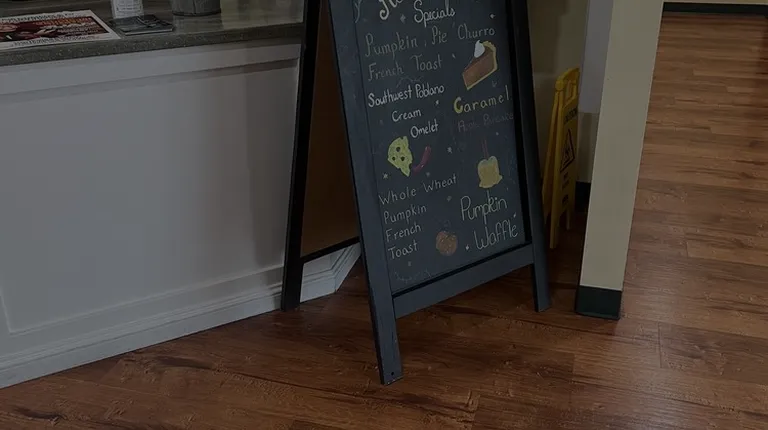 Specials
Pumpkin Pie
French Toast
Southwest Poblano
Cream
Omelet
Whole Wheat
Pumpkin
French
Toast
Churro
Caramel
Pumpkin
Waffle